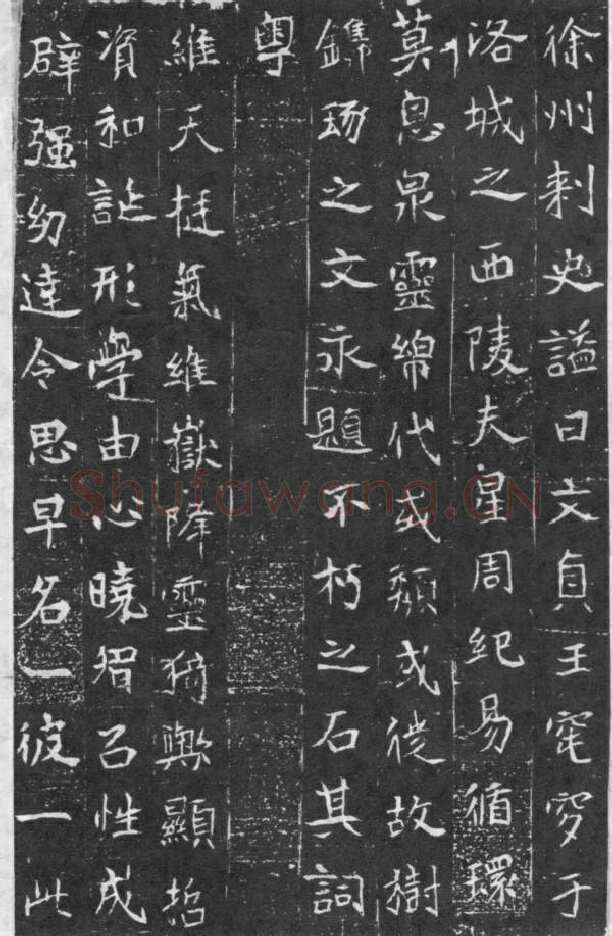 徐州刺史謚曰文貞王窀穸于
洛城之西陵夫星周紀易循環
莫息泉靈綿代或頹或徙故樹
鐫琢之文永題不朽之石其詞
粵
維天挺氣維嶽降靈猗歟顯哲
資和誕形學由心曉智召性成
辟强幼達令思早名一彼一此
Shufawang.CN